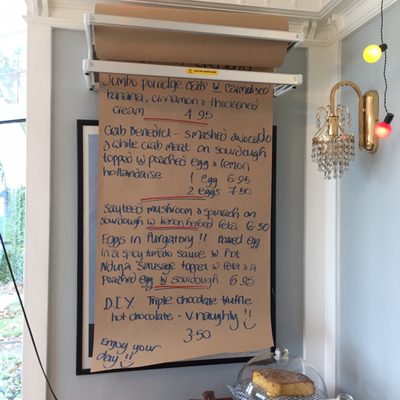 Jumbo porridge oats w caramelised
banana, cinnamon & thickened
cream 4.95
Crab Benedict - smashed avocado
& white crab meat on sourdough
topped w poached egg & lemon
hollandaise 1 egg 6.95
2 eggs 7.50
Sauteed mushroom & spinach on
sourdough w lemon herbed feta 6.50
Eggs in Purgatory!! Baked egg
in a spicy tomato sauce w hot
Nduja sausage topped w feta & a
poached egg w sourdough 6.95
D.I.Y. Triple chocolate truffle
hot chocolate - v.naughty!
3.50
Enjoy your
day!!